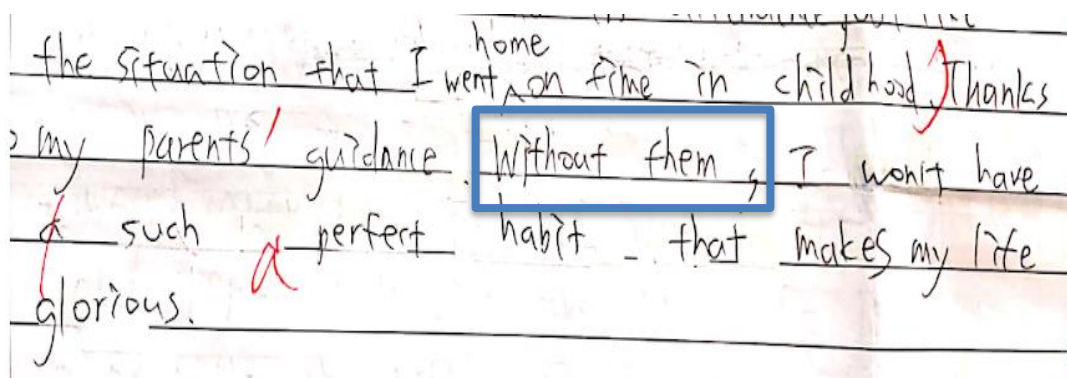 the situation that I went home on time in childhood, Thanks
my parents' guidance. Without them, I won't have
a such a perfect habit that makes my life
glorious.